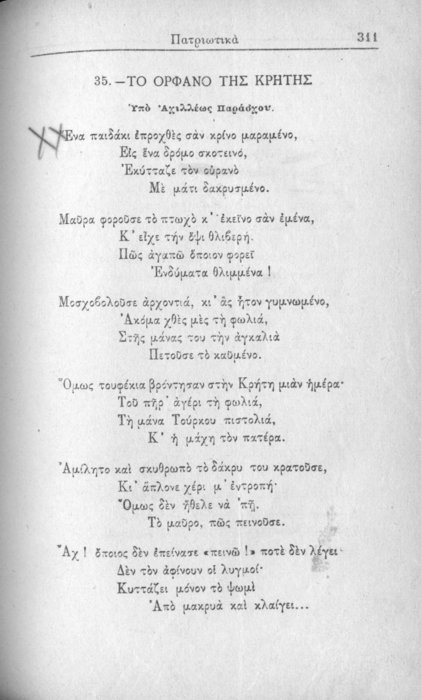 Πατριωτικὰ 311
35.—ΤΟ ΟΡΦΑΝΟ ΤΗΣ ΚΡΗΤΗΣ
Ὑπὸ Ἀχιλλέως Παράσχου.
Ἕνα παιδάκι ἐπροχθὲς σὰν κρίνο μαραμένο,
Εἰς ἕνα δρόμο σκοτεινό,
Ἐκύτταζε τὸν οὐρανὸ
Μὲ μάτι δακρυσμένο.
Μαῦρα φοροῦσε τὸ πτωχὸ κ' ἐκεῖνο σὰν ἐμένα,
Κ' εἶχε τὴν ὄψι θλιβερή.
Πῶς ἀγαπῶ ὅποιον φορεῖ
Ἐνδύματα θλιμμένα !
Μοσχοβολοῦσε ἀρχοντιά, κι' ἂς ἦτον γυμνωμένο,
Ἀκόμα χθὲς μὲς τὴ φωλιά,
Στῆς μάνας του τὴν ἀγκαλιὰ
Πετοῦσε τὸ καϋμένο.
Ὅμως τουφέκια βρόντησαν στὴν Κρήτη μιὰν ἡμέρα·
Τοῦ πῆρ' ἀγέρι τὴ φωλιά,
Τὴ μάνα Τούρκου πιστολιά,
Κ' ἡ μάχη τὸν πατέρα.
Ἀμίλητο καὶ σκυθρωπὸ τὸ δάκρυ του κρατοῦσε,
Κι' ἅπλονε χέρι μ' ἐντροπή·
Ὅμως δὲν ἤθελε νὰ 'πῇ.
Τὸ μαῦρο, πῶς πεινοῦσε.
Ἄχ ! ὅποιος δὲν ἐπείνασε «πεινῶ !» ποτὲ δὲν λέγει·
Δὲν τὸν ἀφίνουν οἱ λυγμοί·
Κυττάζει μόνον τὸ ψωμὶ
Ἀπὸ μακρυὰ καὶ κλαίγει...